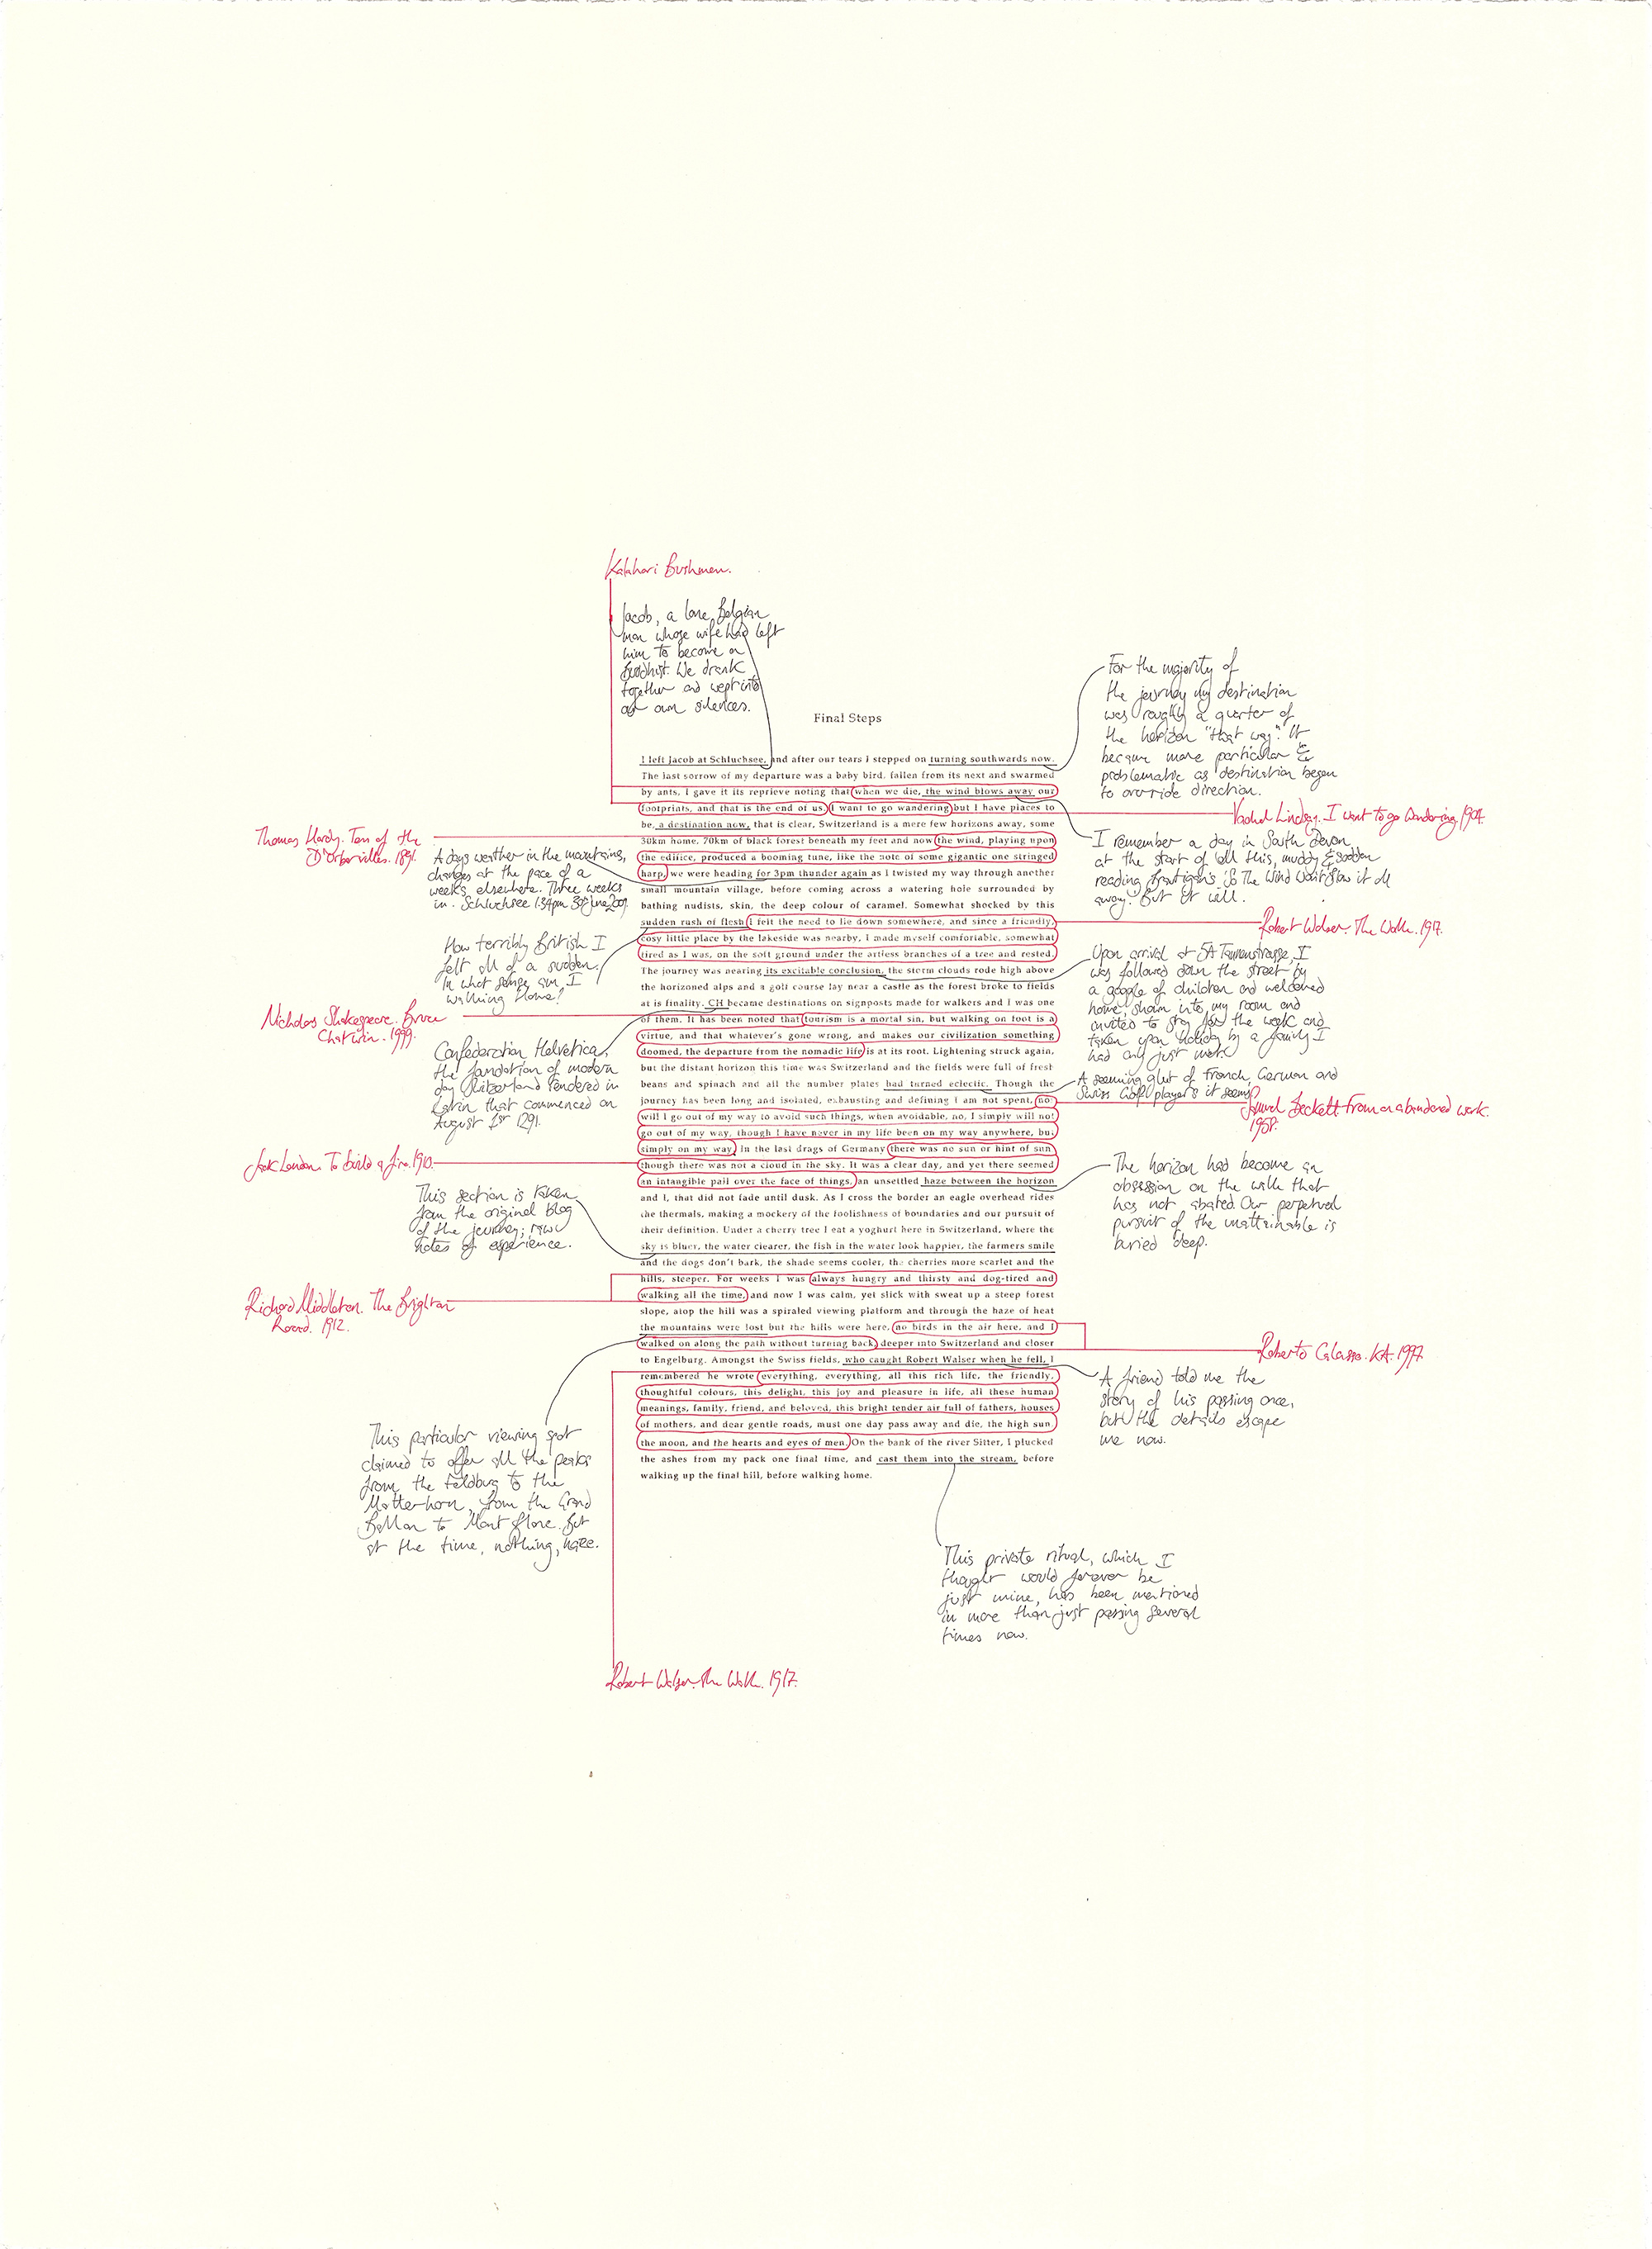 Kalahari Bushmen.
Jacob, a lone Belgian
man whose wife had left
him to become a
Buddhist. We drank
together and wept into
our own silences.
Final Steps
I left Jacob at Schluchsee, and after our tears I stepped on turning southwards now.
The last sorrow of my departure was a baby bird, fallen from its next and swarmed
by ants. I gave it its reprieve noting that when we die, the wind blows away our
footprints, and that is the end of us. I want to go wandering but I have places to
be, a destination now, that is clear, Switzerland is a mere few horizons away, some
30km home, 70km of black forest beneath my feet and now the wind, playing upon
the edifice, produced a booming tune, like the note of some gigantic one stringed
harp, we were heading for 3pm thunder again as I twisted my way through another
small mountain village, before coming across a watering hole surrounded by
bathing nudists, skin, the deep colour of caramel. Somewhat shocked by this
sudden rush of flesh I felt the need to lie down somewhere, and since a friendly,
cosy little place by the lakeside was nearby, I made myself comfortable, somewhat
tired as I was, on the soft ground under the artless branches of a tree and rested.
The journey was nearing its excitable conclusion, the storm clouds rode high above
the horizoned alps and a golf course lay near a castle as the forest broke to fields
at is finality. CH became destinations on signposts made for walkers and I was one
of them. It has been noted that tourism is a mortal sin, but walking on foot is a
virtue, and that whatever's gone wrong, and makes our civilization something
doomed, the departure from the nomadic life is at its root. Lightening struck again,
but the distant horizon this time was Switzerland and the fields were full of frest
beans and spinach and all the number plates had turned eclectic. Though the
journey has been long and isolated, exhausting and defining I am not spent, no
will I go out of my way to avoid such things, when avoidable, no, I simply will not
go out of my way, though I have never in my life been on my way anywhere, but
simply on my way. In the last drags of Germany there was no sun or hint of sun
though there was not a cloud in the sky. It was a clear day, and yet there seemed
an intangible pall over the face of things, an unsettled haze between the horizon
and I, that did not fade until dusk. As I cross the border an eagle overhead rides
the thermals, making a mockery of the foolishness of boundaries and our pursuit of
their definition. Under a cherry tree I eat a yoghurt here in Switzerland, where the
sky is bluer, the water clearer, the fish in the water look happier, the farmers smile
and the dogs don't bark, the shade seems cooler, the cherries more scarlet and the
hills, steeper. For weeks I was always hungry and thirsty and dog-tired and
walking all the time, and now I was calm, yet slick with sweat up a steep forest
slope, atop the hill was a spiraled viewing platform and through the haze of heat
the mountains were lost but the hills were here, no birds in the air here, and I
walked on along the path without turning back, deeper into Switzerland and closer
to Engelburg. Amongst the Swiss fields, who caught Robert Walser when he fell, I
remembered he wrote everything, everything, all this rich life, the friendly,
thoughtful colours, this delight, this joy and pleasure in life, all these human
meanings, family, friend, and beloved, this bright tender air full of fathers, houses
of mothers, and dear gentle roads, must one day pass away and die, the high sun,
the moon, and the hearts and eyes of men. On the bank of the river Sitter, I plucked
the ashes from my pack one final time, and cast them into the stream, before
walking up the final hill, before walking home.
Thomas Hardy. Tess of the
D'Urbervilles. 1891.
A days weather in the mountains,
changes at the pace of a
weeks elsewhere. Three weeks
in. Schluchsee 1:34pm 30th June 2009
How terribly British I
felt all of a sudden.
In what sense am I
walking home?
Nicholas Shakespeare. Bruce
Chatwin. 1999.
Confederation Helvetica,
the foundation of modern
day Switzerland rendered in
Latin that commenced on
August 1st 1291.
Jack London. To build a fire. 1910.
This section is taken
from the original blog
of the journey; raw
notes of experience.
Richard Middleton. The Brighton
Road. 1912.
This particular viewing spot
claimed to offer all the peaks
from the Feldburg to the
Matterhorn, from the Grand
Ballon to Mont Blanc. But
at the time, nothing, haze.
For the majority of
the journey my destination
was roughly a quarter of
the horizon "that way". It
became more particular &
problematic as destination began
to override direction.
Vachel Lindsay. I want to go wandering. 1904.
I remember a day in South Devon,
at the start of all this, muddy & sodden
reading Brautigan's 'So The Wind Won't Blow it All
away'. But it will.
Robert Walser. The Walk. 1917.
Upon arrival at 5A Tannenstrasse, I
was followed down the street by
a gaggle of children and welcomed
home, shown into my room and
invited to stay for the week and
taken upon holiday by a family I
had only just met.
A seeming glut of French, German and
Swiss Golf players it seems.
Samuel Beckett. From an abandoned work.
1958.
The horizon had become an
obsession on the walk that
has not abated. Our perpetual
pursuit of the unattainable is
buried deep.
Roberto Calasso. KA. 1997.
A friend told me the
story of his passing once,
but the details escape
me now.
This private ritual, which I
thought would forever be
just mine, has been mentioned
in more than just passing several
times now.
Robert Walser. The Walk. 1917.